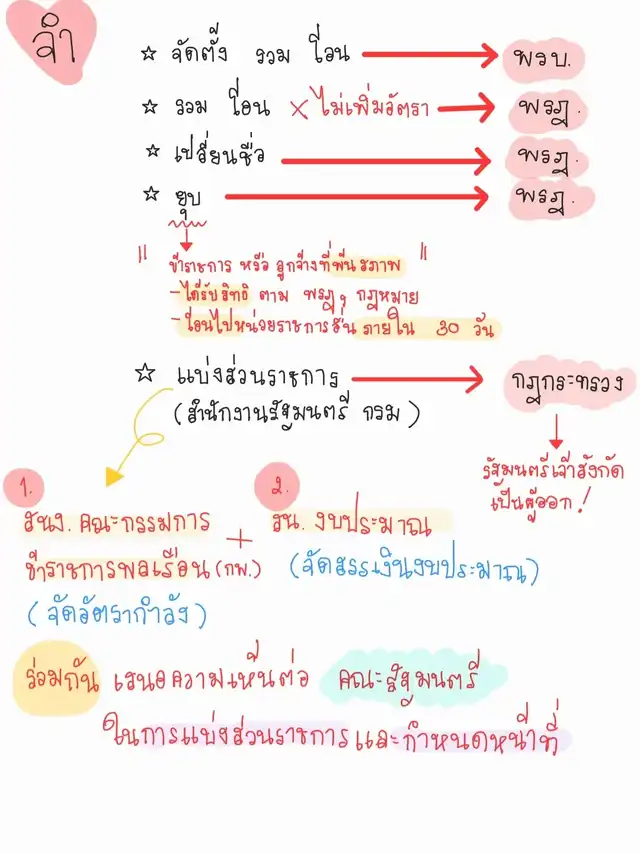 จำ
☆ จัดตั้ง รวม โอน → พรบ.
☆ รวม โอน × ไม่เพิ่มอัตรา → พรฎ.
☆ เปลี่ยนชื่อ → พรฎ.
☆ ยุบ → พรฎ.
" ข้าราชการ หรือ ลูกจ้างที่พ้นสภาพ "
- ได้รับสิทธิ ตาม พรฎ, กฎหมาย
- โอนไปหน่วยราชการอื่น ภายใน 30 วัน
☆ แบ่งส่วนราชการ → กฎกระทรวง
(สำนักงานรัฐมนตรี กรม)
รัฐมนตรีเจ้าสังกัด
เป็นผู้ออก!
1.
สนง. คณะกรรมการ
ข้าราชการพลเรือน (กพ.)
(จัดอัตรากำลัง)
+
2.
สน. งบประมาณ
(จัดสรรเงินงบประมาณ)
ร่วมกัน เสนอความเห็นต่อ คณะรัฐมนตรี
ในการแบ่งส่วนราชการและกำหนดหน้าที่